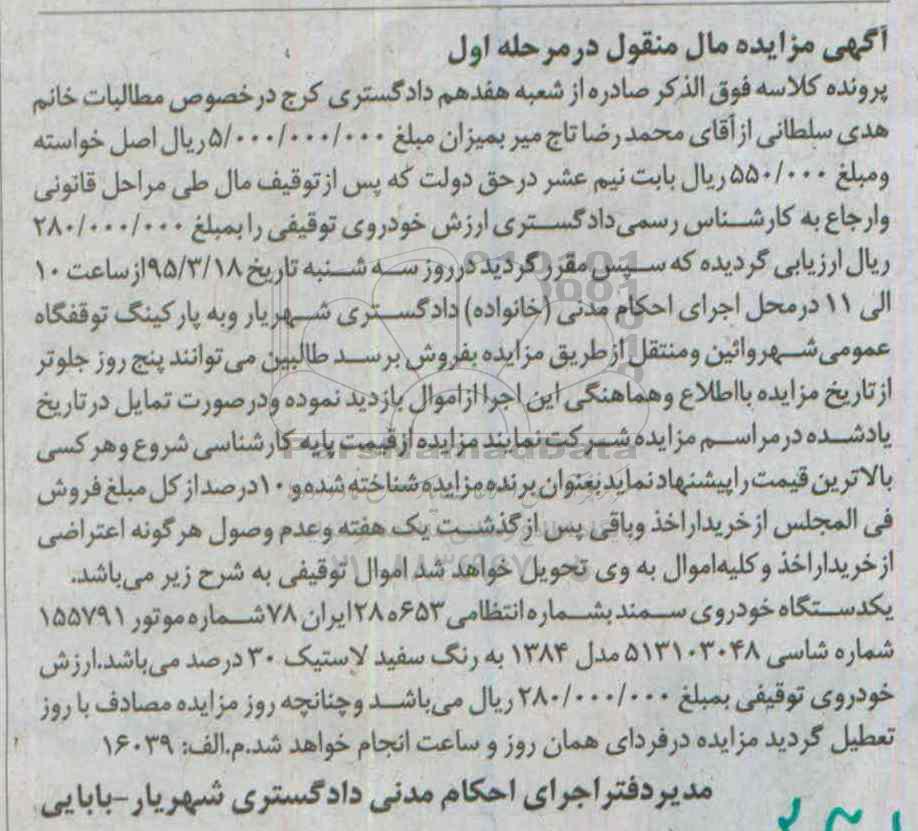 آگهی مزایده مال منقول در مرحله اول
پرونده کلاسه فوق الذکر صادره از شعبه هفدهم دادگستری کرج در خصوص مطالبات خانم
هدی سلطانی از آقای محمد رضا تاج میر بمیزان مبلغ ۵/۰۰۰/۰۰۰/۰۰۰ ریال اصل خواسته
ومبلغ ۵۵۰/۰۰۰ ریال بابت نیم عشر در حق دولت که پس از توقیف مال طی مراحل قانونی
وارجاع به کارشناس رسمی دادگستری ارزش خودروی توقیفی را بمبلغ ۲۸۰/۰۰۰/۰۰۰
ریال ارزیابی گردیده که سپس مقرر گردید در روز سه شنبه تاریخ ۹۵/۳/۱۸ از ساعت ۱۰
الی ۱۱ در محل اجرای احکام مدنی (خانواده) دادگستری شهریار وبه پارکینگ توقفگاه
عمومی شهروائین ومنتقل از طریق مزایده بفروش برسد طالبین می توانند پنج روز جلوتر
از تاریخ مزایده بااطلاع وهماهنگی این اجرا از اموال بازدید نموده ودر صورت تمایل در تاریخ
یادشده در مراسم مزایده شرکت نمایند مزایده از قیمت پایه کارشناسی شروع وهر کسی
بالاترین قیمت را پیشنهاد نماید بعنوان برنده مزایده شناخته شده و ۱۰ درصد از کل مبلغ فروش
فی المجلس از خریدار اخذ وباقی پس از گذشت یک هفته وعدم وصول هرگونه اعتراضی
از خریدار اخذ و کلیه اموال به وی تحویل خواهد شد اموال توقیفی به شرح زیر می باشد.
یکدستگاه خودروی سمند بشماره انتظامی ۶۵۳ه۲۸ ایران ۷۸ شماره موتور ۱۵۵۷۹۱
شماره شاسی ۵۱۳۱۰۳۰۴۸ مدل ۱۳۸۴ به رنگ سفید لاستیک ۳۰ درصد می باشد.ارزش
خودروی توقیفی بمبلغ ۲۸۰/۰۰۰/۰۰۰ ریال می باشد وچنانچه روز مزایده مصادف با روز
تعطیل گردید مزایده در فردای همان روز و ساعت انجام خواهد شد.م.الف: ۱۶۰۳۹
مدیر دفتر اجرای احکام مدنی دادگستری شهریار-بابایی
ParsNamadData